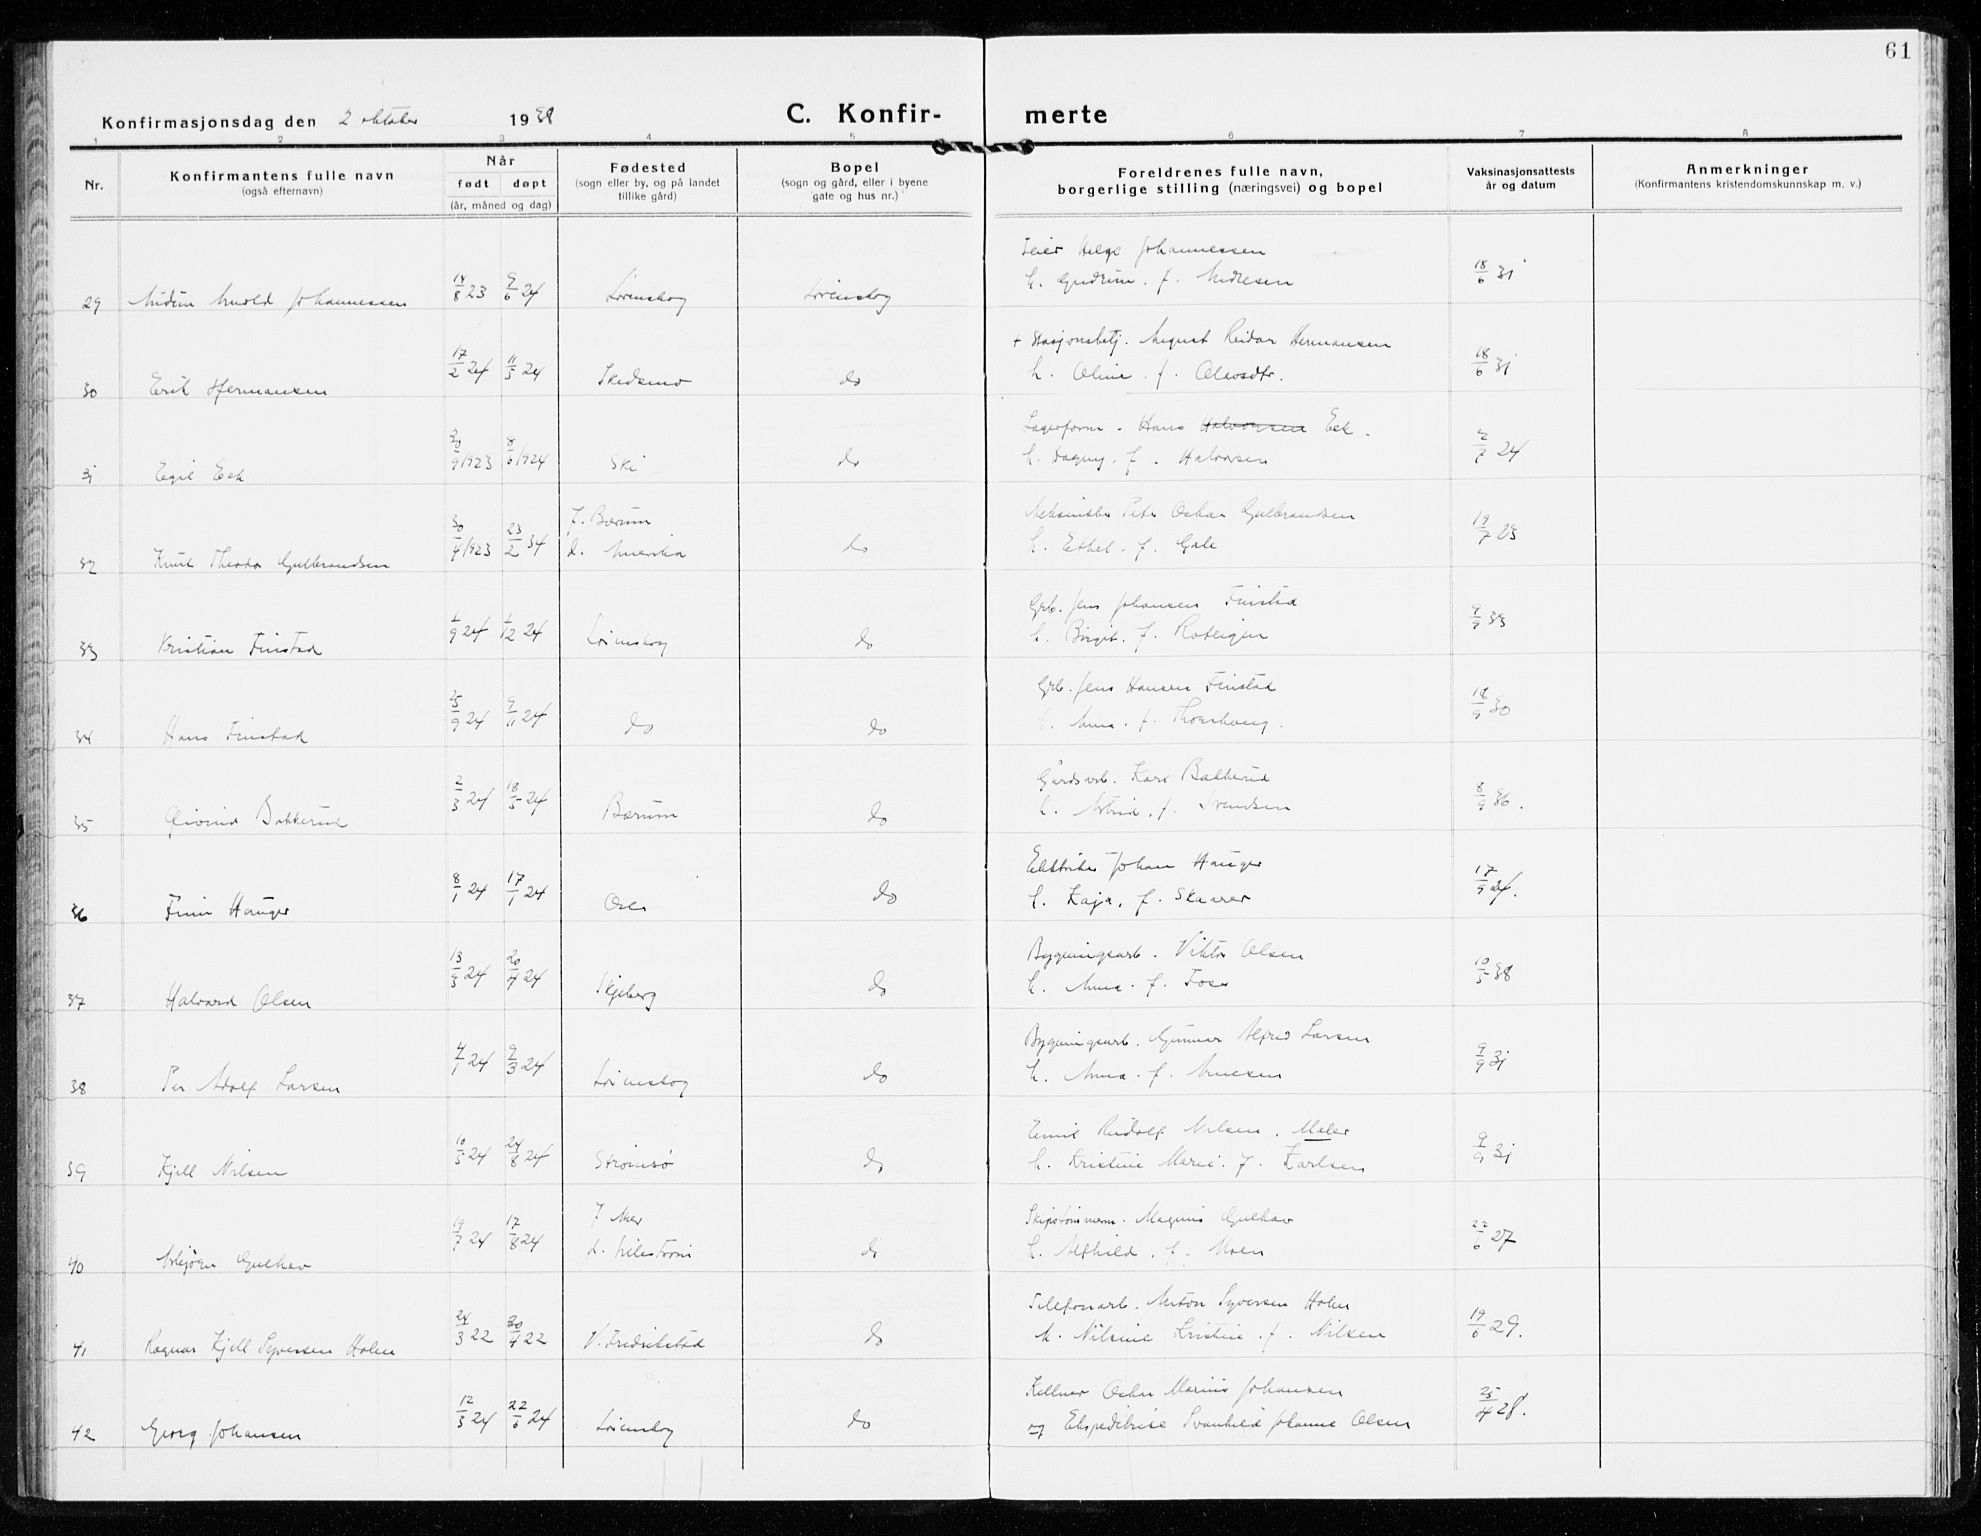 61
Konfirmasjonsdag den 2 oktober 1938
C. Konfir-
merte
1 2 3 4 5 6 7 8
Nr.
Konfirmantens fulle navn
(også efternavn)
Når
født døpt
(år, måned og dag)
Fødested
(sogn eller by, og på landet
tillike gård)
Bopel
(sogn og gård, eller i byene
gate og hus nr.)
Foreldrenes fulle navn,
borgerlige stilling (næringsvei) og bopel
Vaksinasjonsattests
år og datum
Anmerkninger
(Konfirmantens kristendomskunnskap m. v.)
Feier Helge Johannessen
29 Audun Arnold Johannessen 14/8 23 9/6 24 Lørenskog Lørenskog h. Gudrun. f. Andresen 18/6 31
+ Stasjonsbetj. August Reidar Hermansen
30 Erik Hermansen 17/2 24 11/5 24 Skedsmo do h. Oline. f. Olavsdtr. 18/6 31
Lagerform. Hans Halvorsen Eek.
31 Egil Eek /9 1923 8/6 1924 Ski do h. Dagny. f. Halvorsen 2/7 24
f. Bærum
Mekaniker Peter Oskar Gulbrandsen
32 Knut Theodor Gulbrandsen 30/4 1923 23/2 34 d. Amerika do h. Ethel. f. Gale 19/7 23
Grb. Jens Johansen Finstad
33 Kristian Finstad 1/9 24 1/12 24 Lørenskog do h. Birgit. f. 9/9 33
Grb. Jens Hansen Finstad
34 Hans Finstad 25/9 24 9/11 24 do do h. Anna. f. 18/9 30
Gårdsarb. Karl Bakkerud
35 Øivind Bakkerud 2/3 24 18/5 24 Bærum do h. Astrid. f. Svendsen 8/9 36.
Elektriker Johan Hauger
36 Finn Hauger 8/1 24 17/1 24 Oslo do h. Kaja. f. Skaarer 17/9 24.
Bygningsarb. Viktor Olsen
37 Halvard Olsen 13/3 24 20/4 24 Skjeberg do h. Anna. f. Foss 10/5 38
Bygningsarb. Gunnar Alfred Larsen
38 Per Adolf Larsen 4/1 24 9/3 24 Lørenskog do h. Anna. f. Arnesen 9/9 31
Emil Rudolf Nilsen. Maler
39 Kjell Nilsen 10/5 24 24/8 24 Strømsø do h. Kristine Marie. f. Karlsen 9/9 31
f Aker
Skipstømmerm. Magnus Gulhav
40 Asbjørn Gulhav 19/7 24 17/8 24 d. Lilestrøm do h. Alfhild. f. Moen 22/6 27
Telefonarb. Anton Syversen Holm
41 Ragnar Kjell Syversen Holm 24/3 22 30/4 22 V. Fredrikstad do h. Nilsine Kristine. f. Nilsen 19/6 29.
Kellner Oskar Marius Johansen
42 Georg Johansen 12/3 24 22/6 24 Lørenskog do og Ekspeditrise Svanhild Johanne Olsen 25/4 28.